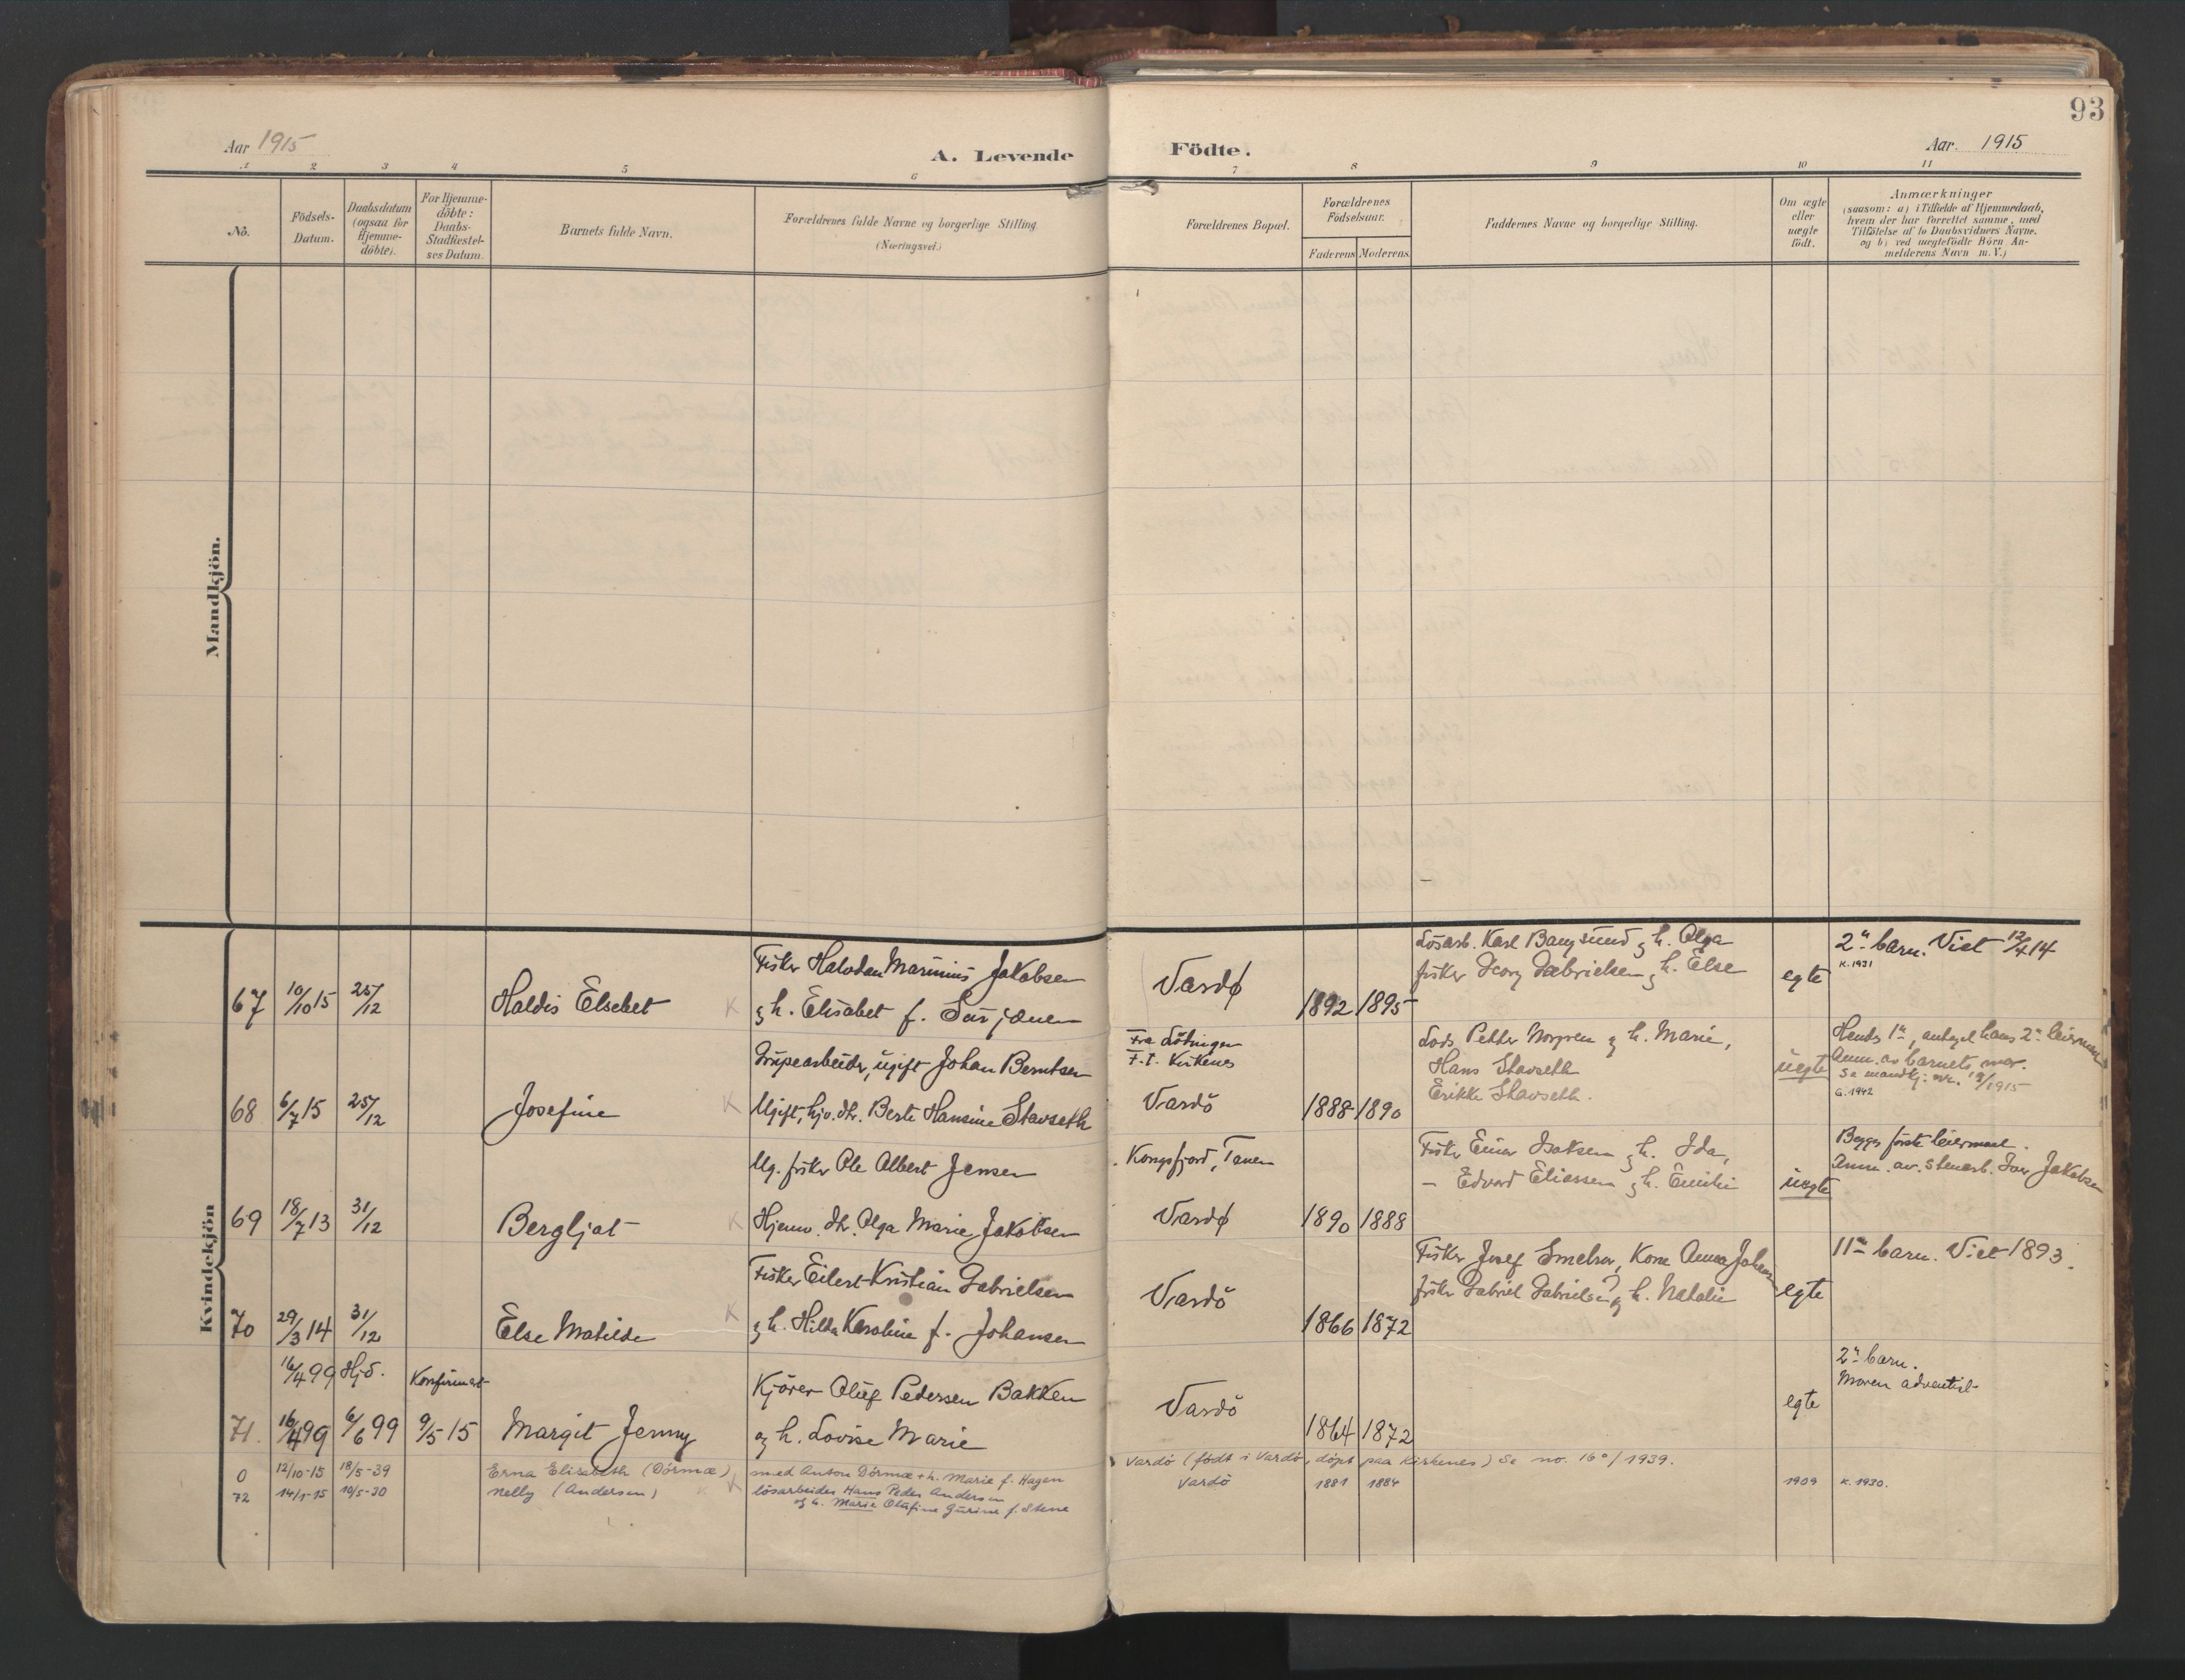 93
Aar 1915
A. Levende
Födte.
Aar. 1915
1 2 3 4 5 6 7 8 9 10 11
No.
Födsels-
Datum.
Daabsdatum
(ogsaa for
Hjemme-
döbte).
For Hjemme-
döbte:
Daabs-
Stadfæstel-
ses Datum.
Barnets fulde Navn.
Forældrenes fulde Navne og borgerlige Stilling
(Næringsvei.)
Forældrenes Bopæl.
Forældrenes
Födselsaar.
Faderens
Moderens.
Faddernes Navne og borgerlige Stilling.
Om ægte
eller
uægte
födt.
Anmærkninger
(saasom: a) i Tilfælde af Hjemmedaab,
hvem der har forrettet samme, med
Tilföielse af to Daabsvidners Navne.
og b) ved uægtefödte Börn An-
melderens Navn m. V.)
Mandkjön.
Kvindekjön
67
10/10 15
25/12
Haldis Elsebet
K
Fisker Halvdan Marinius Jakobsen
g h. Elisabet f.
Vardø
1892
1895
Lösarb. Karl Bangsund g h. Olga
fisker Georg Gabrielsen g h. Else
egte
2n barn. Viet 12/4 14
K. 1931
68
6/7 15
25/12
Josefine
K
Grupearbeider, ugift Johan Berntsen
Ugift, hjv. dtr. Berte Hansine Stavseth
Fra Lödingen
F. t. Kirkenes
Vardö
1888
1890
Lods Petter Norgren g h. Marie,
Hans Stavseth
Erikke Stavseth.
uegte
Hendes 1n, antagel hans 2n leiermaal
Anm. av barnets mor.
Se mandkj: nr. 19/1915
G. 1942
69
18/7 13
31/12
Bergljot
K
Ug. fisker Ole Albert Jensen
Hjemv. dtr. Olga Marie Jakobsen
Kongsfjord, Tanen
Vardø
1890
1888
Fisker Einar Isaksen g h. Ida,
– Edvard Eliassen g h. Emilie
uegte
Begges förste leiermaal.
Anm. av. stenarb. Ivar Jakobsen
70
29/3 14
31/12
Else Matilde
K
Fisker Eilert Kristian Gabrielsen
g h. Hilda Karoline f. Johansen
Vardö
1866
1872
Fisker Josef Smelror, Kone Anna Johansen
fisker Gabriel Gabrielsen g h. Natalie
egte
11te barn. Viet 1893.
16/4 99
Hjd.
Konfirmert
71.
16/4 99
6/6 99
9/5 15
Margit Jenny
Kjörer Oluf Pedersen Bakken
og h. Lovise Marie
Vardö
1864
1872
egte
2n barn.
Moren adventist
0
12/10-15
18/5-39
Erna Elisabeth (Dörmæ)
med Anton Dörmæ + h. Marie f. Hagen
Vardö (født i Vardö, döpt paa Kirkenes) Se no. 16 a/1939.
72
14/1-15
10/5-30
Nelly (Andersen)
K
lösarbeider Hans Peder Andersen
og h. Marie Olufine Gurine f. Stene
Vardö
1881
1884
1909
K. 1930.